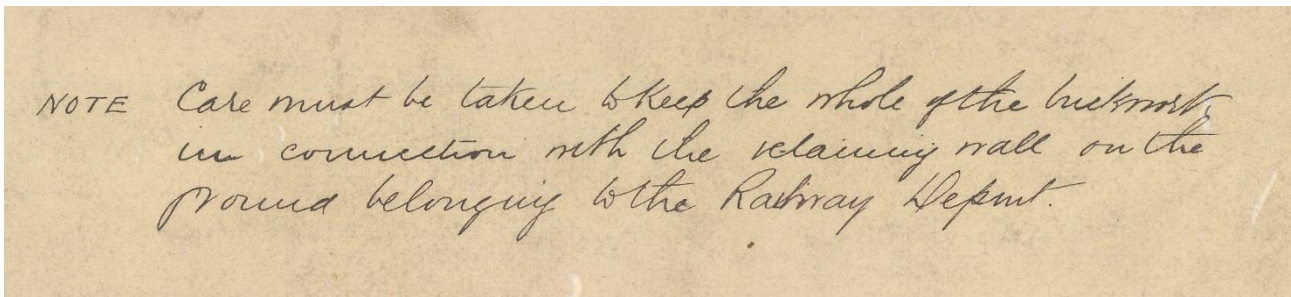 NOTE Care must be taken to keep the whole of the brickwork
in connection with the retaining wall on the
ground belonging to the Railway Depmt.